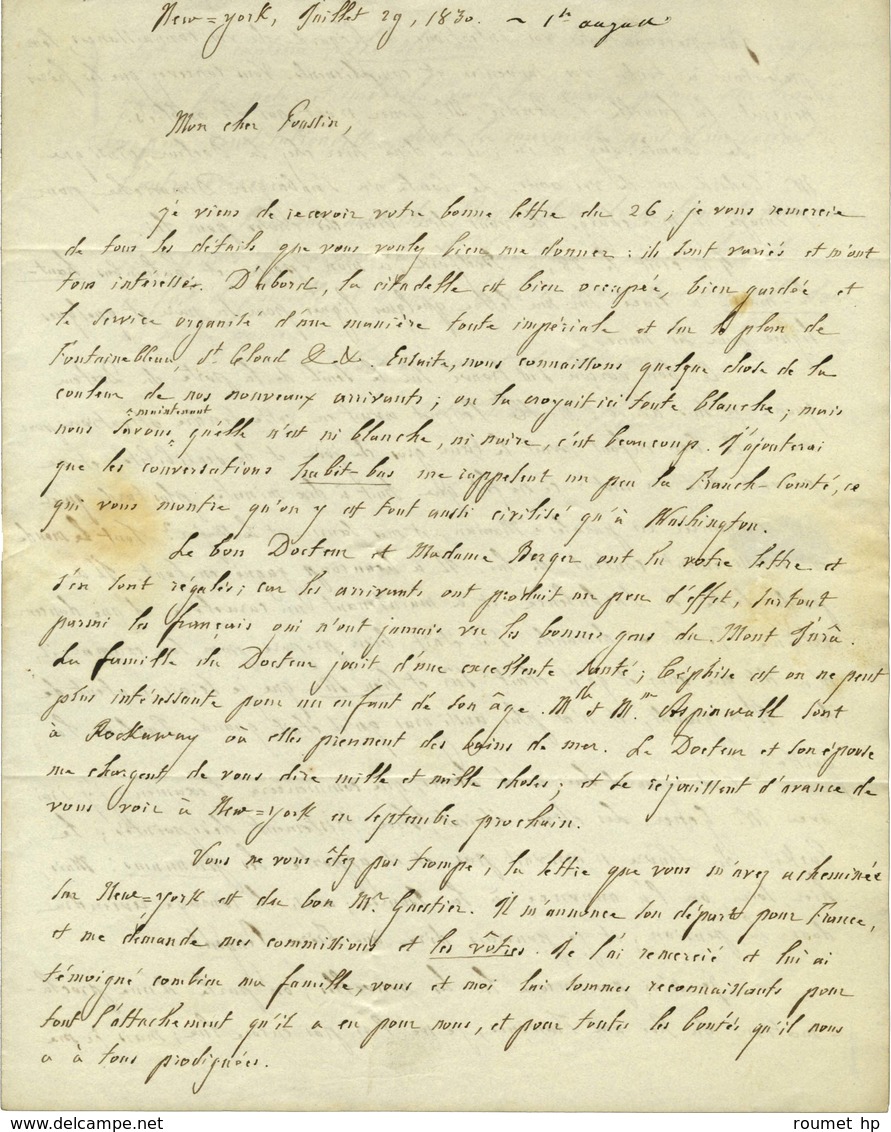 New=york, Juillet 29, 1830. ~ 1st august
Mon cher Foustin,
j'e viens de recevoir votre bonne lettre du 26 ; je vous remercie
de tous les détails que vous voulez bien me donner : ils sont variés et m'ont
tous intéréssés. D'abord, la citadelle est bien occupée, bien gardée et
le service organisé d'une manière toute impériale et sur le plan de
Fontainebleau, St Cloud &c &c. Ensuite, nous connaissons quelque chose de la
couleur de nos nouveaux arrivants ; on la croyait ici toute blanche ; mais
maintenant
nous savons qu'elle n'est ni blanche, ni noire, c'est beaucoup. J'ajouterai
que les conversations habit-bas me rappelent un peu la Franch-Comté, ce
qui vous montre qu'on y est tout aussi civilisé qu'à Washington.
Le bon Docteur et Madame Berger ont lu votre lettre et
s'en sont régalés ; car les arrivants ont produit un peu d'effet, surtout
parmi les français qui n'ont jamais vu les bonnes gens du Mont Jurâ.
La famille du Docteur jouit d'une excellente santé ; Céphise est on ne peut
plus intéressante pour un enfant de son âge. Mlle et Mme Aspinwall sont
à Rockaway où elles prennent des bains de mer. Le Docteur et son épouse
me chargent de vous dire mille et mille choses ; et se réjouissent d'avance de
vous voir à New=york en septembre prochain.
Vous ne vous êtez pas trompé, la lettre que vous m'avez acheminée
sur New=york est du bon Mr. Guestier. Il m'annonce son départ pour France,
et me demande mes commissions et les vôtres. Je l'ai remercié et lui ai
témoigné combien ma famille, vous et moi lui sommes reconnaissants pour
tout l'attachement qu'il a eu pour nous, et pour toutes les bontés qu'il nous
a à tous prodignées.
www.delcampe.net
roumet hp